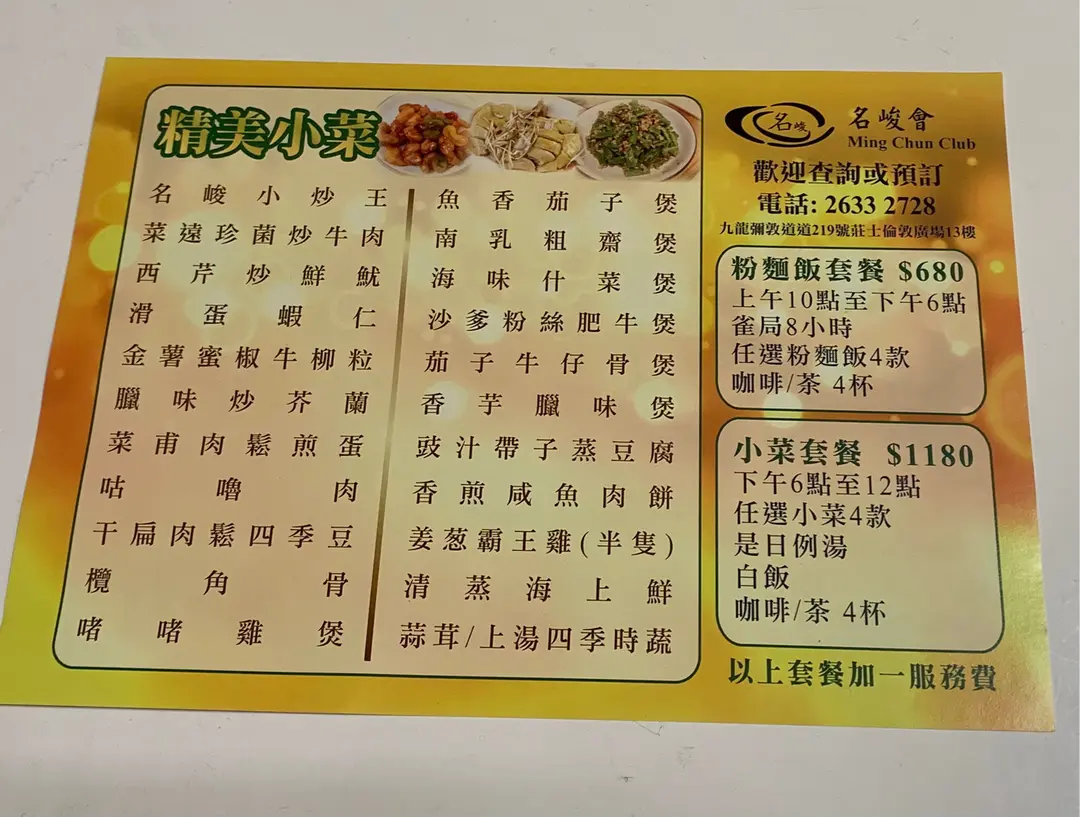 精美小菜
名峻小炒王
菜遠珍菌炒牛肉
西芹炒鮮魷
滑蛋蝦仁
金薯蜜椒牛柳粒
臘味炒芥蘭
菜甫肉鬆煎蛋
咕嚕肉
干扁肉鬆四季豆
欖角骨
啫啫雞煲
魚香茄子煲
南乳粗齋煲
海味什菜煲
沙爹粉絲肥牛煲
茄子牛仔骨煲
香芋臘味煲
豉汁帶子蒸豆腐
香煎咸魚肉餅
姜葱霸王雞(半隻)
清蒸海上鮮
蒜茸/上湯四季時蔬
名峻
名峻會
Ming Chun Club
歡迎查詢或預訂
電話: 2633 2728
九龍彌敦道道219號莊士倫敦廣場13樓
粉麵飯套餐 $680
上午10點至下午6點
雀局8小時
任選粉麵飯4款
咖啡/茶 4杯
小菜套餐 $1180
下午6點至12點
任選小菜4款
是日例湯
白飯
咖啡/茶 4杯
以上套餐加一服務費